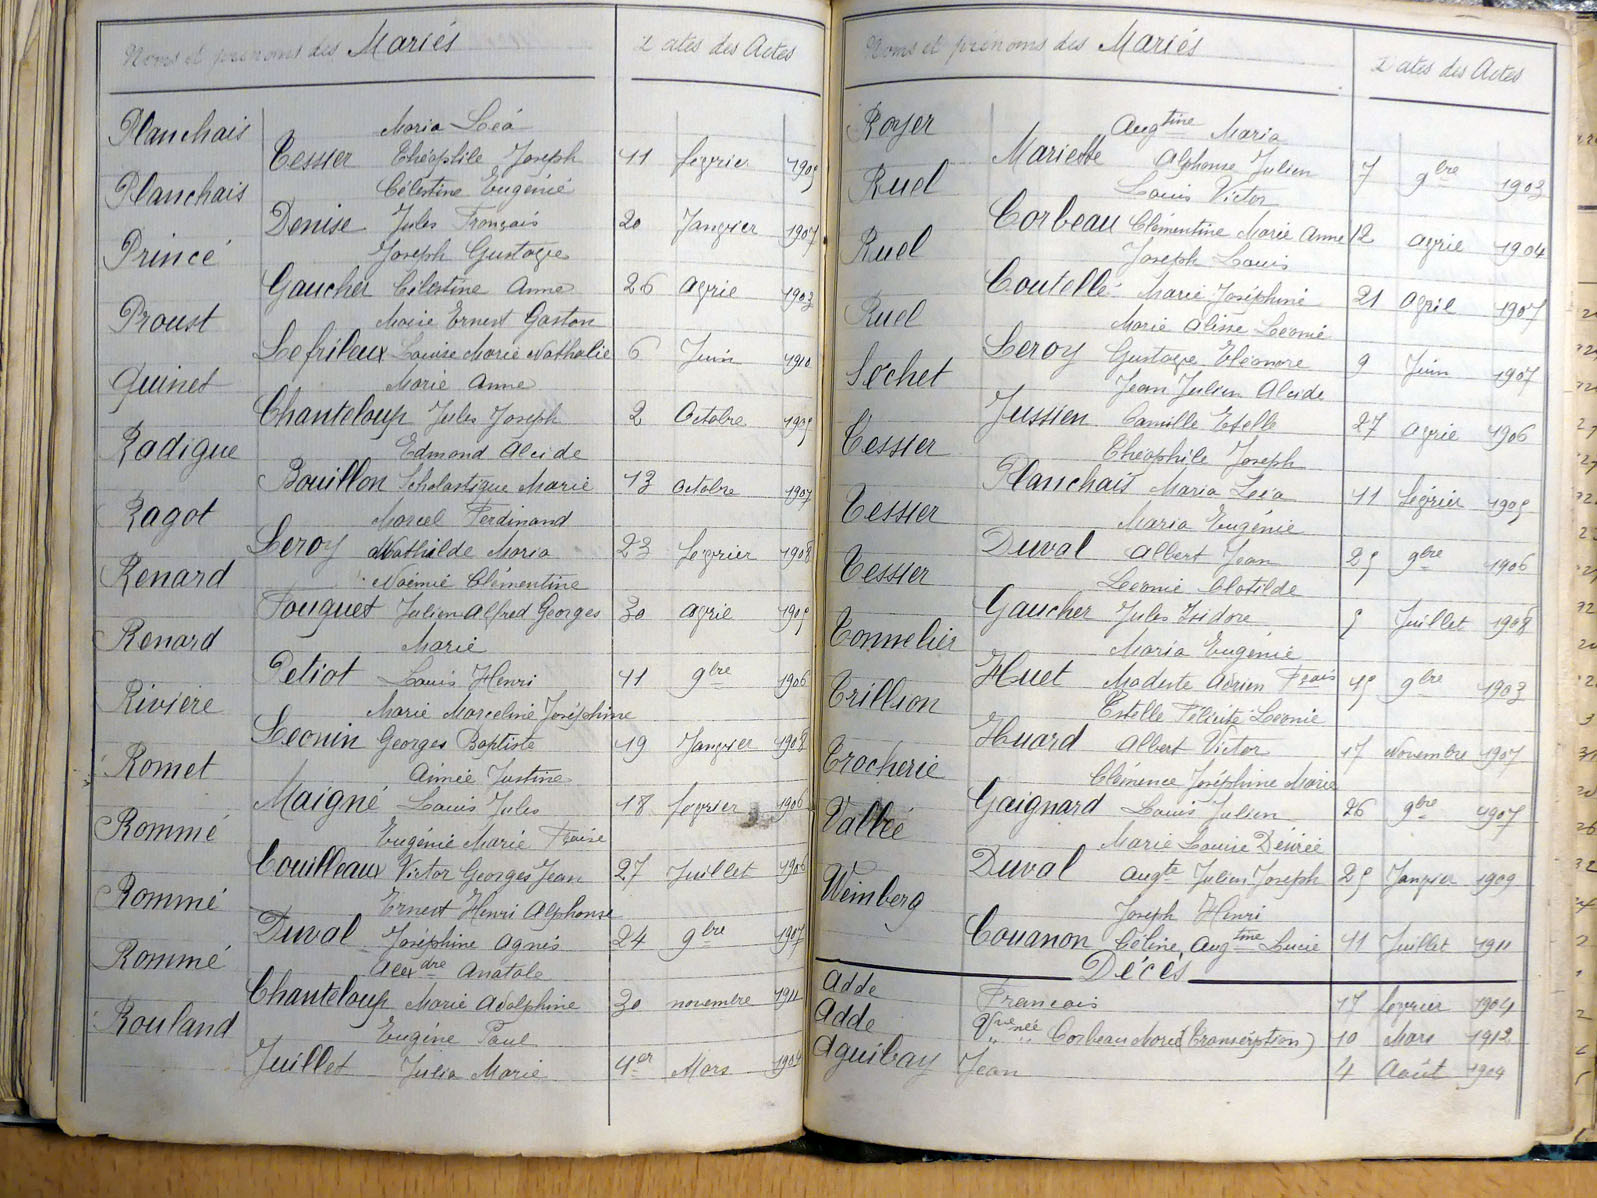 Noms et prénoms des Mariés Dates des Actes
Planchais Maria Léa
Tessier Théophile Joseph 11 février 1905
Planchais Célestine Eugénie
Denise Jules François 20 Janvier 1907
Princé Joseph Gustave
Gaucher Célestine Anne 26 avril 1903
Proust Marie Ernest Gaston
Lefrileux Louise Marie Nathalie 6 Juin 1910
Quinet Marie Anne
Chanteloup Jules Joseph 2 Octobre 1905
Radigue Edmond Alcide
Bouillon Scholastique Marie 13 Octobre 1907
Ragot Marcel Ferdinand
Leroy Mathilde Maria 23 fevrier 1908
Renard Noémie Clémentine
Fouquet Julien Alfred Georges 30 avril 1905
Renard Marie
Petiot Louis Henri 11 9bre 1906
Rivière Marie Marceline Joséphine
Leonin Georges Baptiste 19 Janvier 1908
Romet Aimée Justine
Maigné Louis Jules 18 fevrier 1906
Rommé Eugénie Marie Fçoise
Couilleaux Victor Georges Jean 27 Juillet 1906
Rommé Ernest Henri Alphonse
Duval Joséphine Agnès 24 9bre 1907
Rommé Alexdre Anatole
Chanteloup Marie Adolphine 30 novembre 1911
Rouland Eugène Paul
Juillet Julia Marie 1er Mars 1904
Noms et prénoms des Mariés Dates des Actes
Royer Augtine Maria
Mariette Alphonse Julien 7 9bre 1903
Ruel Louis Victor
Corbeau Clémentine Marie Anne 12 avril 1904
Ruel Joseph Louis
Coutellé Marie Joséphine 21 avril 1907
Ruel Marie Alisse Leonie
Leroy Gustave Eléonore 9 Juin 1907
Séchet Jean Julien Alcide
Jussien Camille Estelle 27 avril 1906
Tessier Théophile Joseph
Planchais Maria Leïa 11 février 1905
Tessier Maria Eugénie
Duval Albert Jean 25 9bre 1906
Tessier Leonie Clotilde
Gaucher Jules Isidore 5 Juillet 1908
Tonnelier Maria Eugénie
Huet Modeste Adrien Fçois 15 9bre 1903
Trillion Estelle Félicité Leonie
Huard Albert Victor 17 Novembre 1907
Trocherie Clémence Joséphine Marie
Gaignard Louis Julien 26 9bre 1907
Vallée Marie Louise Désirée
Duval Augte Julien Joseph 25 Janvier 1909
Weinberg Joseph Henri
Couanon Céline Augtine Lucie 11 Juillet 1911
Décès
Adde Francois 17 fevrier 1904
Adde Vve née Corbeau Marie (Transcription) 10 Mars 1912
Aguibay Jean 4 Août 1904